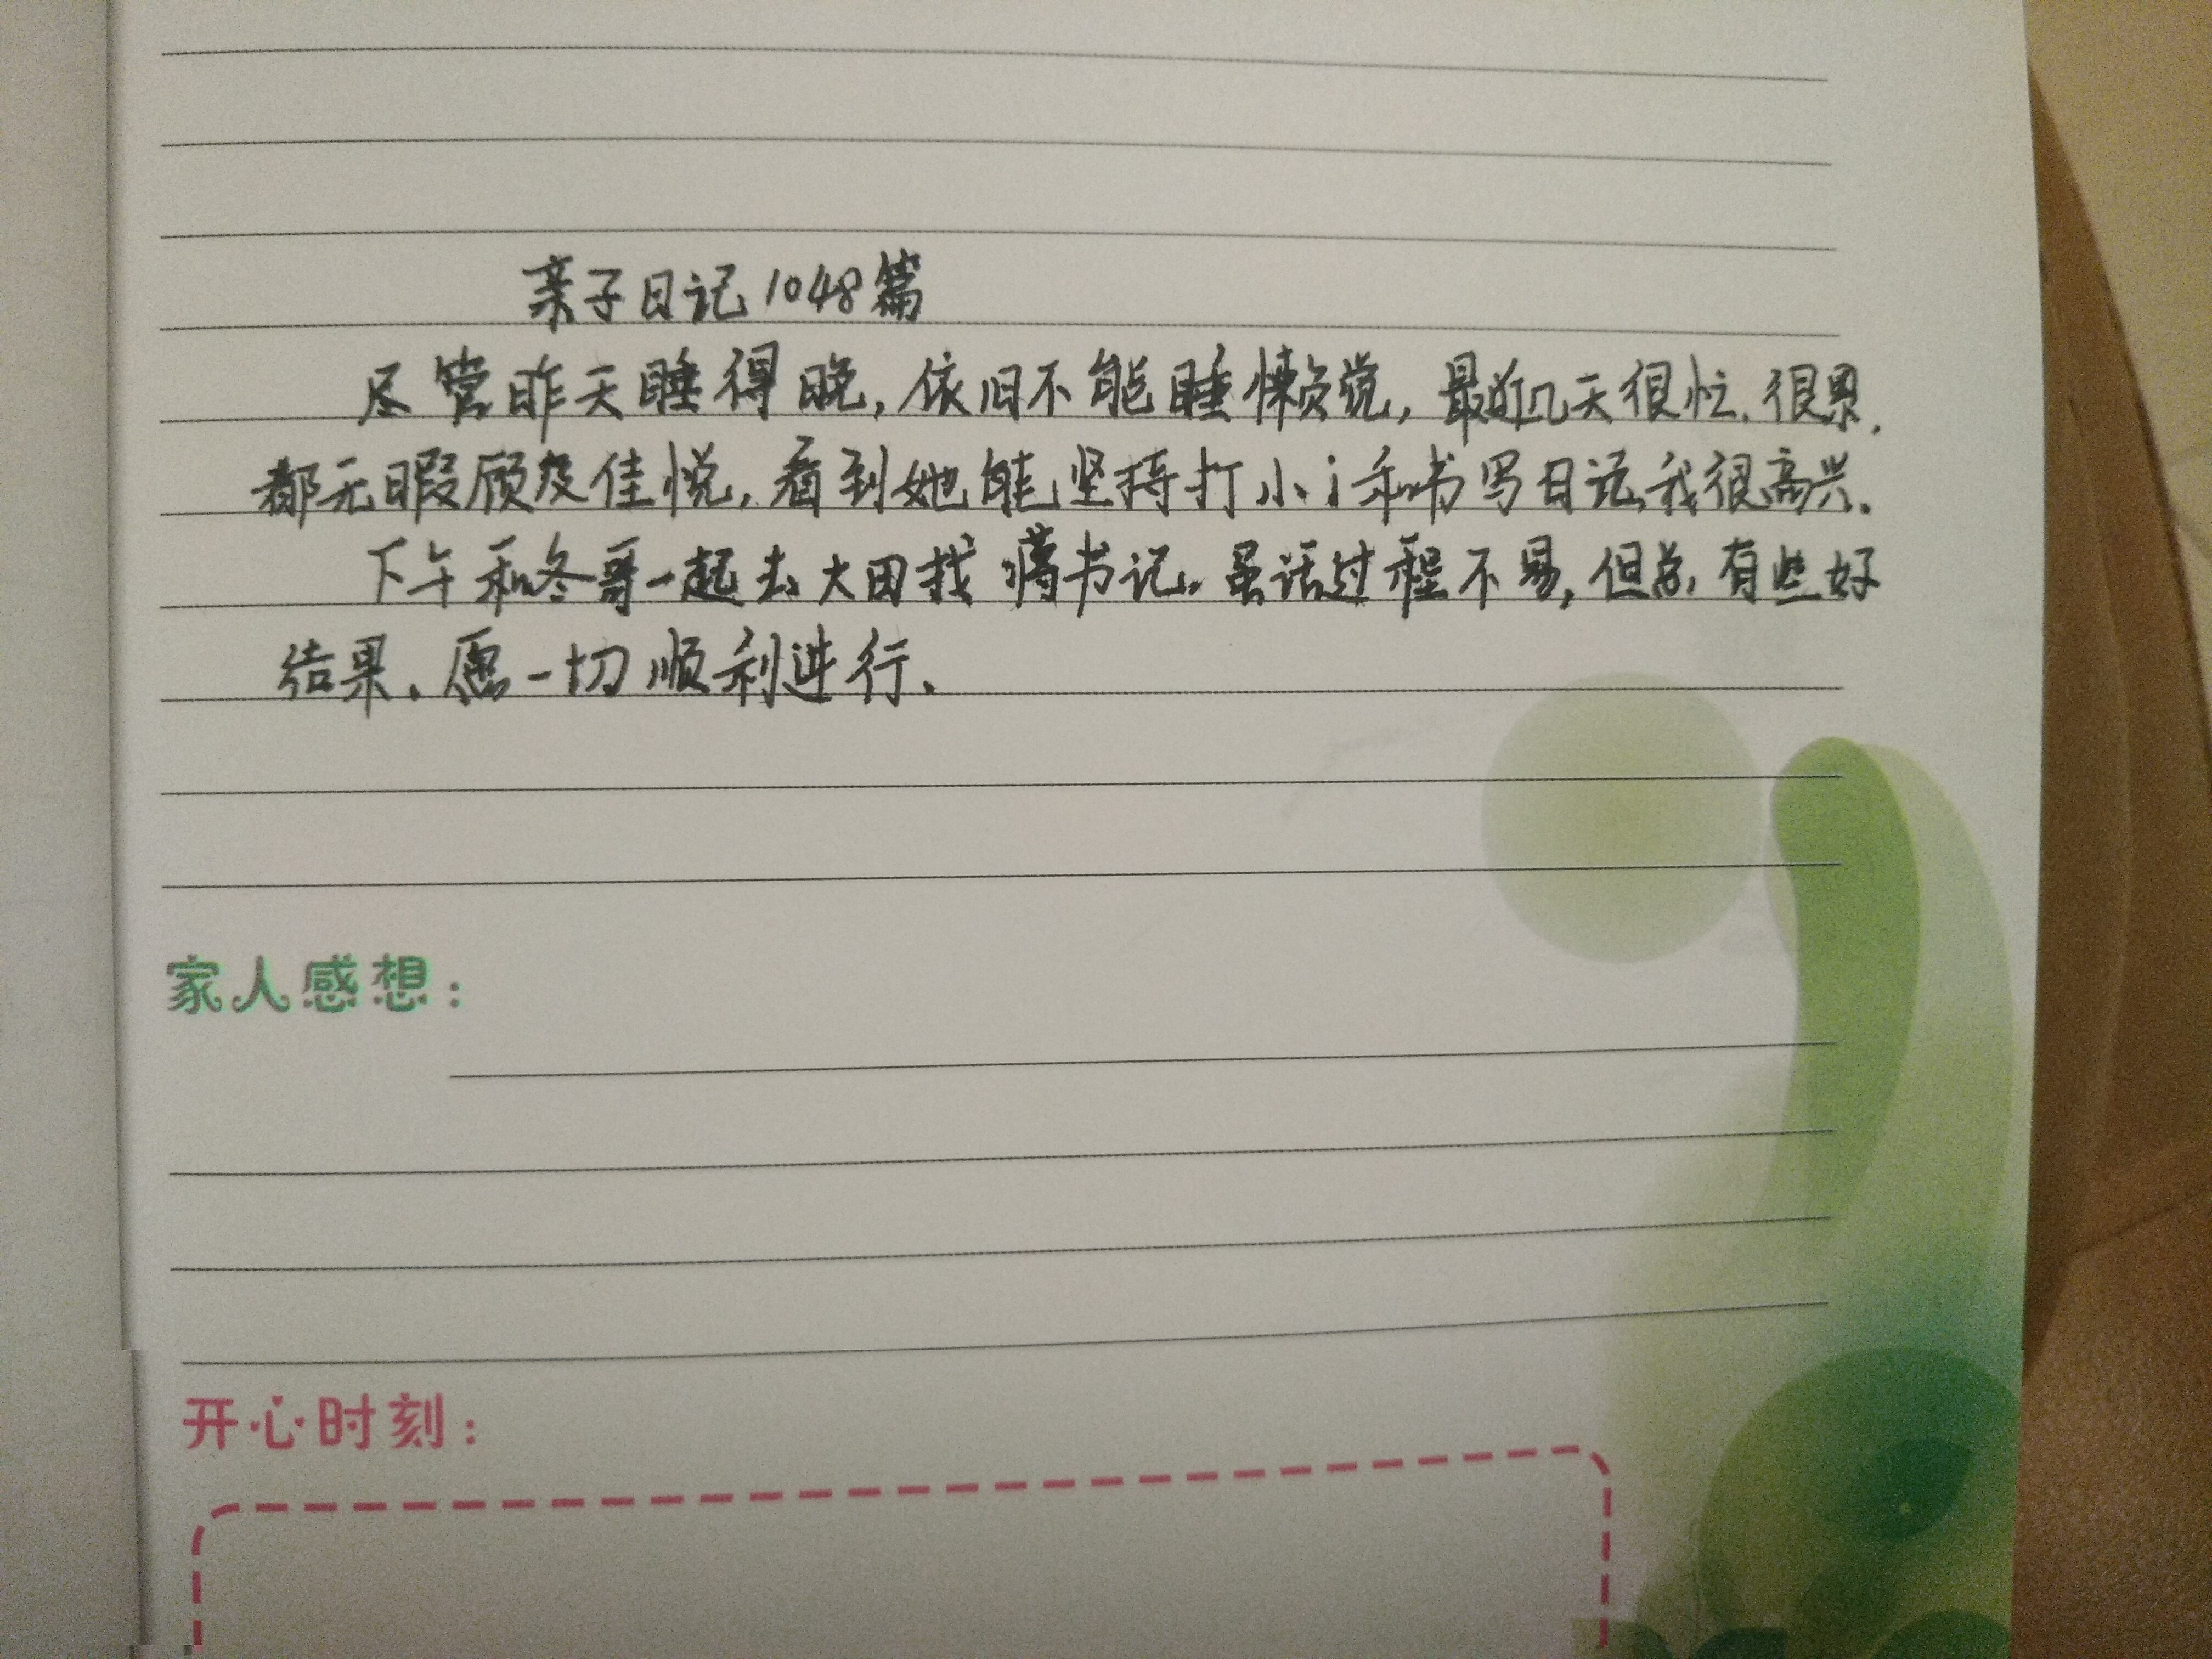 亲子日记1048篇
尽管昨天睡得晚,依旧不能睡懒觉,最近几天很忙.很累.
都无暇顾及佳悦,看到她能坚持打小i和书写日记,我很高兴.
下午和冬哥一起去大田找蒋书记.虽话过程不易,但总有些好
结果.愿一切顺利进行.
家人感想:
开心时刻: